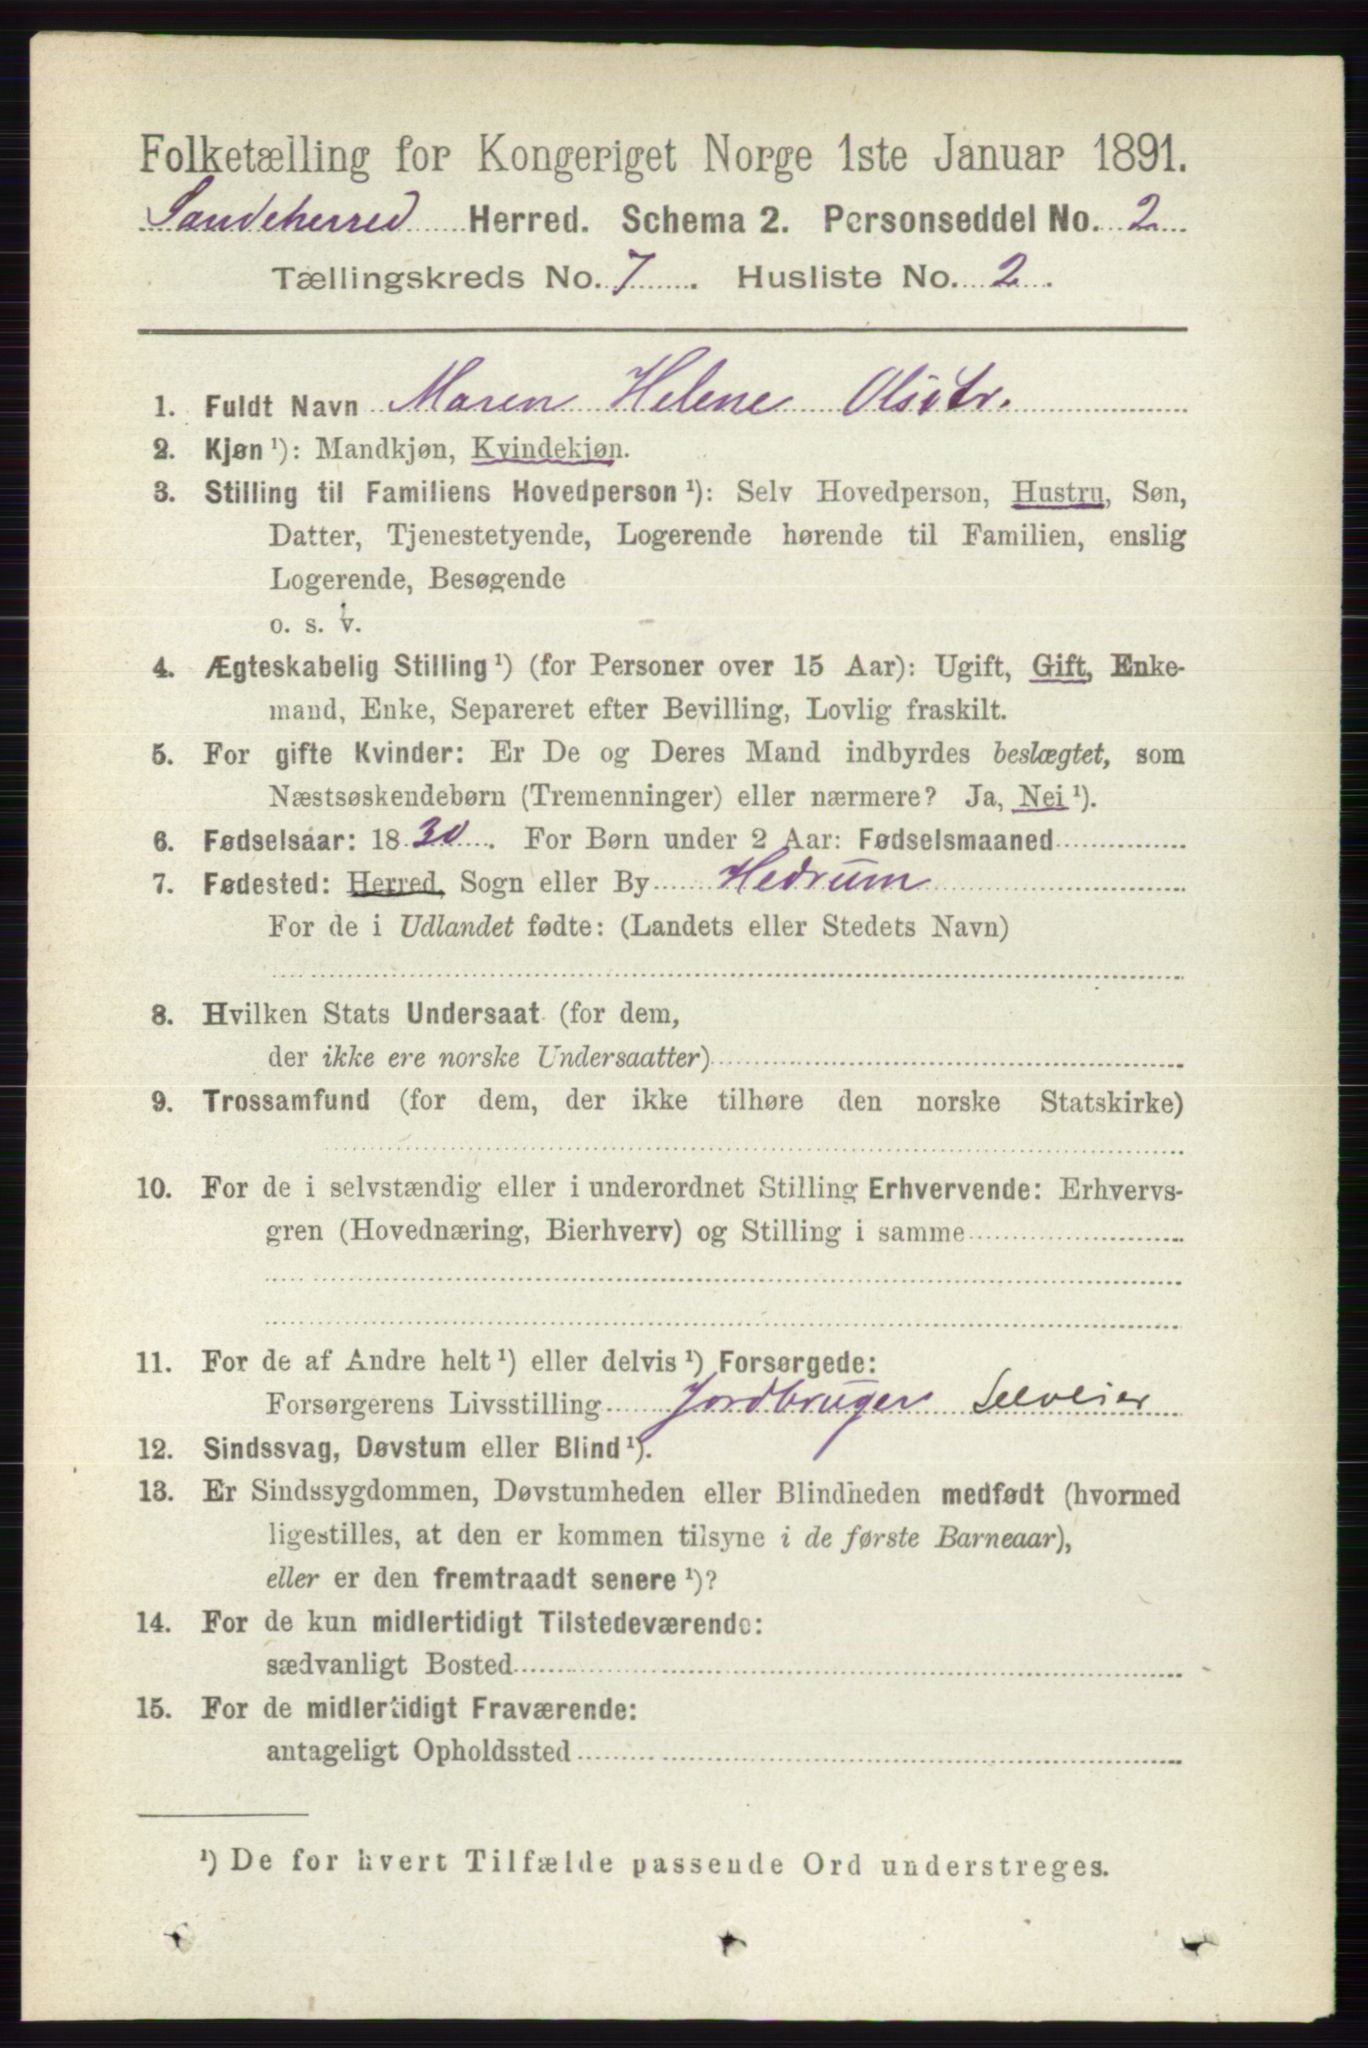 Folketælling for Kongeriget Norge 1ste Januar 1891.
Sandeherred Herred. Schema 2. Personseddel No. 2
Tællingskreds No. 7. Husliste No. 2.
1. Fuldt Navn Maren Helene Olsdtr.
2. Kjøn ¹): Mandkjøn, Kvindekjøn.
3. Stilling til Familiens Hovedperson ¹): Selv Hovedperson, Hustru, Søn,
Datter, Tjenestetyende, Logerende hørende til Familien, enslig
Logerende, Besøgende
o. s. v.
4. Ægteskabelig Stilling ¹) (for Personer over 15 Aar): Ugift, Gift, Enke-
mand, Enke, Separeret efter Bevilling, Lovlig fraskilt.
5. For gifte Kvinder: Er De og Deres Mand indbyrdes beslægtet, som
Næstsøskendebørn (Tremenninger) eller nærmere? Ja, Nei ¹).
6. Fødselsaar: 1830. For Børn under 2 Aar: Fødselsmaaned
7. Fødested: Herred, Sogn eller By Hedrum
For de i Udlandet fødte: (Landets eller Stedets Navn)
8. Hvilken Stats Undersaat (for dem,
der ikke ere norske Undersaatter)
9. Trossamfund (for dem, der ikke tilhøre den norske Statskirke)
10. For de i selvstændig eller i underordnet Stilling Erhvervende: Erhvervs-
gren (Hovednæring, Bierhverv) og Stilling i samme
11. For de af Andre helt ¹) eller delvis ¹) Forsørgede:
Forsørgerens Livsstilling Jordbruger Selveier
12. Sindssvag, Døvstum eller Blind ¹).
13. Er Sindssygdommen, Døvstumheden eller Blindheden medfødt (hvormed
ligestilles, at den er kommen tilsyne i de første Barneaar),
eller er den fremtraadt senere ¹)?
14. For de kun midlertidigt Tilstedeværende:
sædvanligt Bosted
15. For de midlertidigt Fraværende:
antageligt Opholdssted
¹) De for hvert Tilfælde passende Ord understreges.